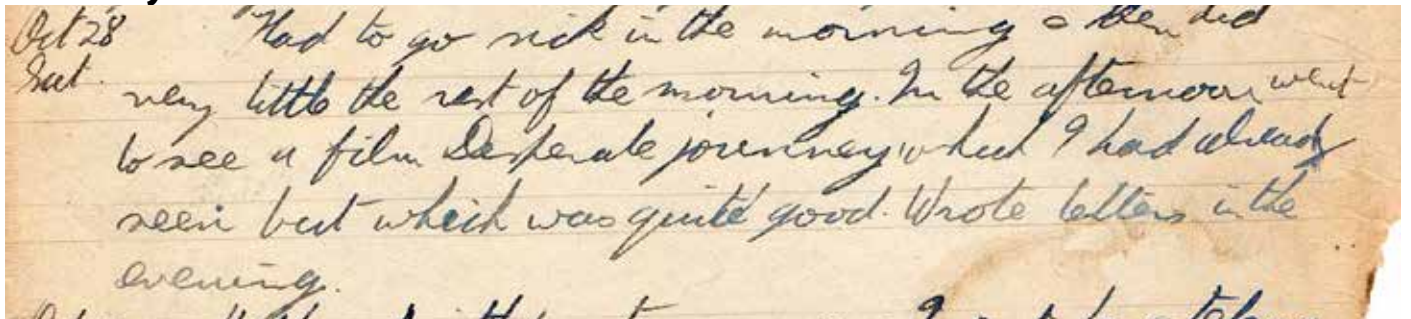 Oct 28 Had to go sick in the morning & then did
Sat. very little the rest of the morning. In the afternoon went
to see a film Desperate jorunney, which I had already
seen but which was quite good. Wrote letters in the
evening.